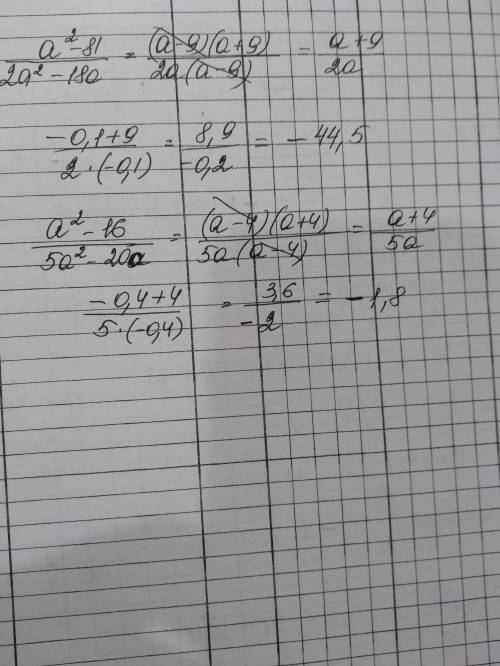 a²-81/2a²-18a = (a-9)(a+9)/2a(a-9) = a+9/2a
-0,1+9/2·(-0,1) = 8,9/-0,2 = -44,5
a²-16/5a²-20a = (a-4)(a+4)/5a(a-4) = a+4/5a
-0,4+4/5·(-0,4) = 3,6/-2 = -1,8